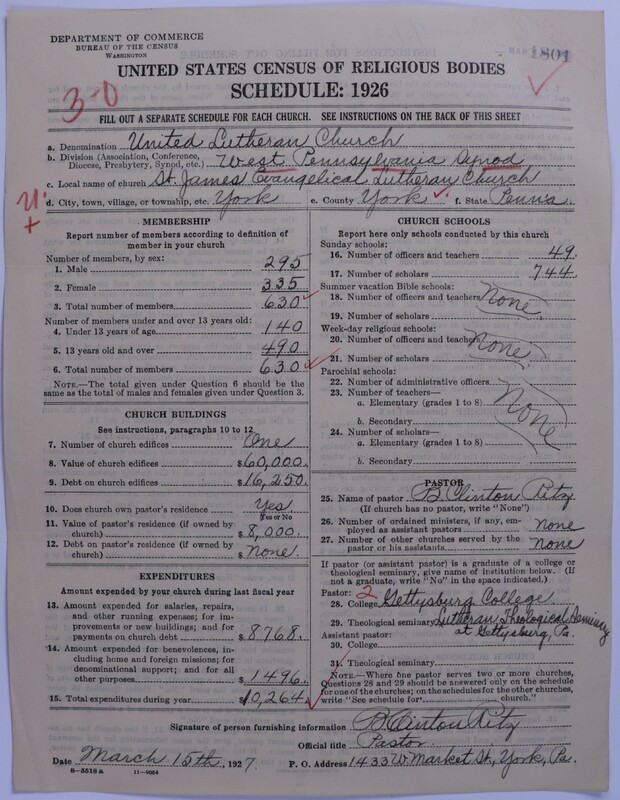 DEPARTMENT OF COMMERCE
BUREAU OF THE CENSUS
WASHINGTON
1801
UNITED STATES CENSUS OF RELIGIOUS BODIES
SCHEDULE: 1926
3-0
FILL OUT A SEPARATE SCHEDULE FOR EACH CHURCH. SEE INSTRUCTIONS ON THE BACK OF THIS SHEET
a. Denomination United Lutheran Church
b. Division (Association, Conference, Diocese, Presbytery, Synod, etc.) West Pennsylvania Synod
c. Local name of church St. James Evangelical Lutheran Church
d. City, town, village, or township, etc. York e. County York f. State Penna
MEMBERSHIP
Report number of members according to definition of
member in your church
Number of members, by sex:
1. Male 295
2. Female 335
3. Total number of members 630
Number of members under and over 13 years old:
4. Under 13 years of age 140
5. 13 years old and over 490
6. Total number of members 630
NOTE.—The total given under Question 6 should be
same as the total of males and females given under Question 3.
CHURCH BUILDINGS
See instructions, paragraphs 10 to 12
7. Number of church edifices One
8. Value of church edifices $60,000.
9. Debt on church edifices $16,250.
10. Does church own pastor's residence Yes
Yes or No
11. Value of pastor's residence (if owned by
church) $8,000.
12. Debt on pastor's residence (if owned by
church) $None.
EXPENDITURES
Amount expended by your church during last fiscal year
13. Amount expended for salaries, repairs,
and other running expenses; for im-
provements or new buildings; and for
payments on church debt $8768.
14. Amount expended for benevolences, in-
cluding home and foreign missions; for
denominational support; and for all
other purposes $1496.
15. Total expenditures during year $10,264.
CHURCH SCHOOLS
Report here only schools conducted by this church
Sunday schools:
16. Number of officers and teachers 49.
17. Number of scholars 744.
Summer vacation Bible schools:
18. Number of officers and teachers None
19. Number of scholars
Week-day religious schools:
20. Number of officers and teachers None
21. Number of scholars
Parochial schools:
22. Number of administrative officers
23. Number of teachers—
a. Elementary (grades 1 to 8) None
b. Secondary
24. Number of scholars—
a. Elementary (grades 1 to 8) None
b. Secondary
PASTOR
25. Name of pastor B. Clinton Ritz
(If church has no pastor, write "None")
26. Number of ordained ministers, if any, em-
ployed as assistant pastors none
27. Number of other churches served by the
pastor or his assistants none
If pastor (or assistant pastor) is a graduate of a college or
theological seminary, give name of institution below. (If
not a graduate, write "No" in the space indicated.)
Pastor: 2
28. College Gettysburg College
29. Theological seminary Lutheran Theological Seminary
at Gettysburg, Pa.
Assistant pastor:
30. College
31. Theological seminary
NOTE.—Where one pastor serves two or more churches,
Questions 28 and 29 should be answered only on the schedule
for one of the churches; on the schedules for the other churches,
write "See schedule for church."
Signature of person furnishing information B Clinton Ritz
Official title Pastor
Date March 15th, 1927. P. O. Address 1433 W. Market St., York, Pa.
8—5518 a 11—9054